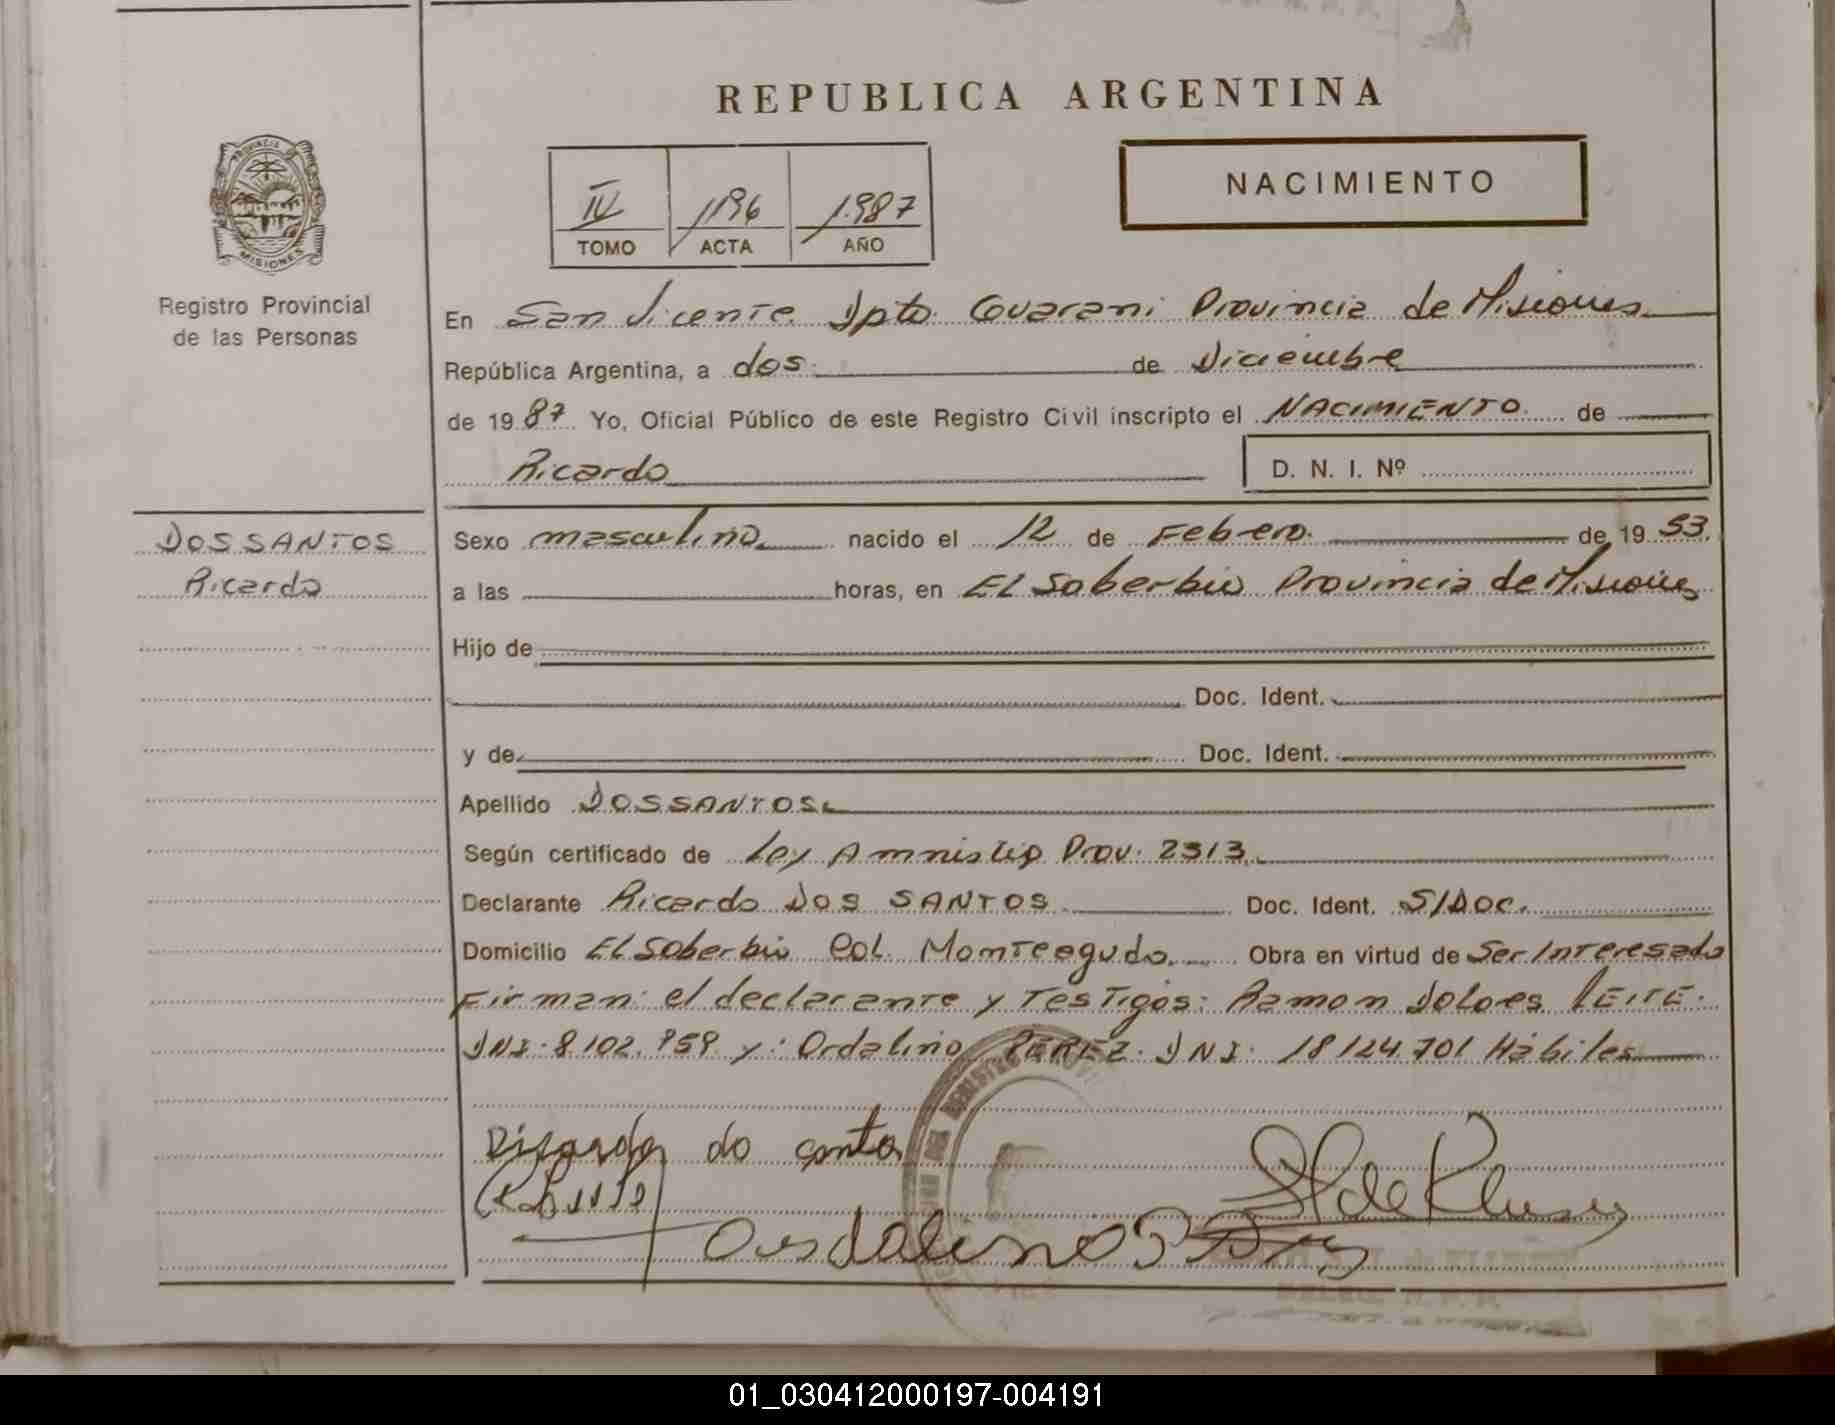 REPUBLICA ARGENTINA
NACIMIENTO
IV 1196 1.987
TOMO ACTA AÑO
PROVINCIA DE
MISIONES
Registro Provincial
de las Personas
En San Vicente Dpto Guarani Provincia de Misiones
República Argentina, a dos de Diciembre
de 1987 Yo, Oficial Público de este Registro Civil inscripto el NACIMIENTO de
Ricardo
D. N. I. Nº
DOSSANTOS
Ricardo
Sexo masculino nacido el 12 de Febrero de 1953.
a las horas, en El Soberbio Provincia de Misiones
Hijo de
Doc. Ident.
y de Doc. Ident.
Apellido DOSSANTOS
Según certificado de Ley Amnistia Prov. 2313
Declarante Ricardo DOS SANTOS Doc. Ident. S/Doc.
Domicilio El Soberbio Col. Monteagudo Obra en virtud de Ser Interesado
Firman: el declarante y Testigos: Ramon Dolores LEITE.
DNI. 8102.959 y: Ordalino PEREZ. DNI. 18124701 Hábiles
01_030412000197-004191